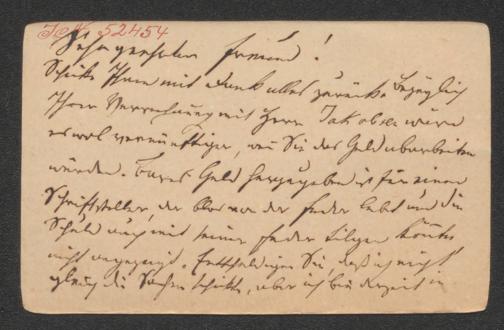 I.N. 52454
Sehr geehrter Freund!
Schicke Ihnen mit Dank alles zurück. Bezüglich
Ihrer Verrechnung mit Herrn Jakobsen wäre
es wol vernünftiger, wenn Sie das Geld abarbeiten
würden. Bares Geld herzugeben ist für einen
Schriftsteller, der blos von der Feder lebt und die
Schuld auch mit seiner Feder tilgen könnte
nicht angezeigt. Entschuldigen Sie, daß ich nicht
gleich die Sachen schickte, aber ich bin derzeit in